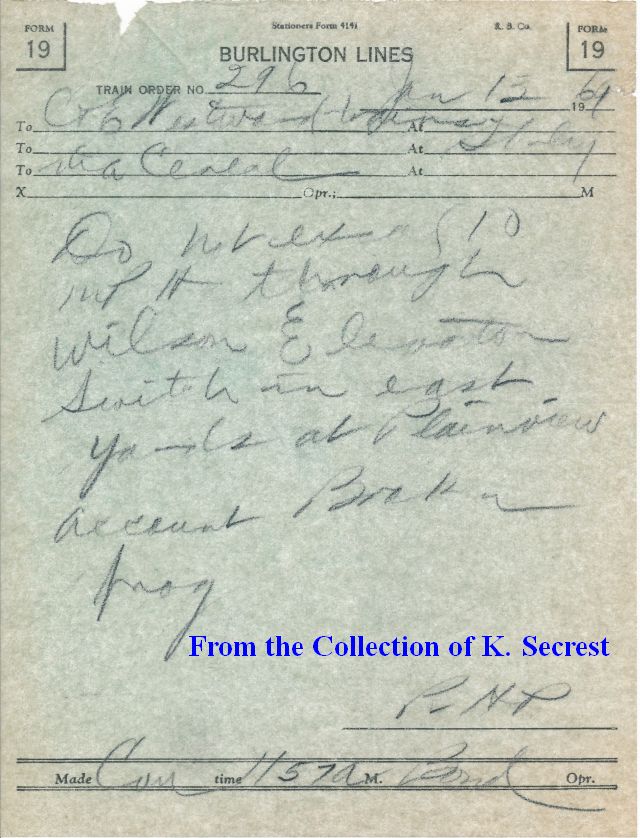 FORM 19
Stationers Form 4141
K. B. Co.
FORM 19
BURLINGTON LINES
TRAIN ORDER NO. 296 Jan 13 1961
To C & E Westward At
To At
To At
X Opr.; M
Do not exceed 10
mph through
Wilson Elevator
Switch in east
yards at Plainview
account Broken
frog
From the Collection of K. Secrest
RHP
Made Com time 1157 A M. Bond Opr.